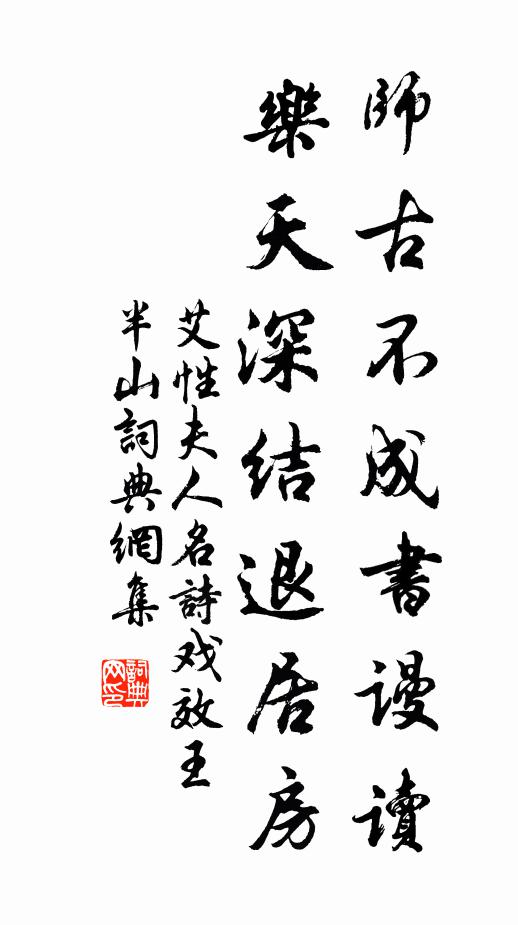 師古不成書謾讀
樂天深結退居房
艾性夫人名詩戏效王
半山詞典網集
詞典网印